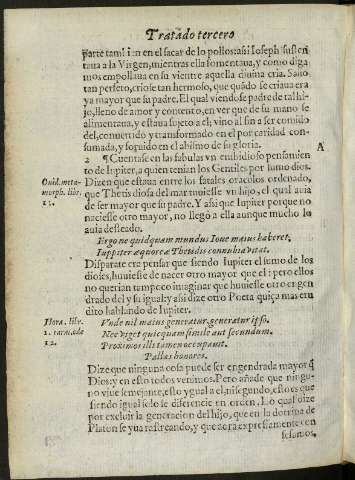 Tratado tercero
parte tambien en el sacar de lo pollos: asi Ioseph susten
taua a la Virgen, mientras ella fomentaua, y como diga
mos empollaua en su vientre aquella diuina cria. Salio
tan perfeto, criose tan hermoso, que quãdo se criaua era
ya mayor que su padre. El qual viendose padre de tal hi-
jo, lleno de amor y contento, en ver que de su mano se
alimentaua, y estaua sujeto a el, vino al fin a ser comido
del, conuertido y transformado en el por caridad con-
sumada, y soruido en el abismo de su gloria.
2 ¶ Cuentase en las fabulas vn embidioso pensamien
to de Iupiter, a quien tenian los Gentiles por sumo dios.
Dizen que estaua entre los fatales oraculos ordenado,
que Thetis diosa del mar tuuiesse vn hijo, el qual auia
de ser mayor que su padre. Y assi que Iupiter porque no
naciesse otro mayor, no llegò a ella aunque mucho lo
auia desseado.
Ouid. meta-
morph. libr.
11.
A
Ergo ne quidquam mundus Ioue maius haberet,
Iuppiter æquoreæ Thetidis connubia vitat.
Disparate era pensar que siendo Iupiter el sumo de los
dioses, huuiesse de nacer otro mayor que el: pero ellos
no querian tampoco imaginar que huuiesse otro engen
drado del y su igual y assi dize otro Poeta quiça mas eru
dito hablando de Iupiter.
Hora. libr.
1. carm. ode
12.
Vnde nil maius generatur, generatur ipso.
Nec viget quicquam simile aut secundum.
Proximos illi tamen occupauit.
Pallas honores.
Dize que ninguna cosa puede ser engendrada mayor q̃
Dios; y en esto todos venimos. Pero añade que ningu-
no viue semejante, esto y gual a el; ni segundo, esto es que
siendo igual solo se diferencie en orden. Lo qual dize
por excluir la generacion del hijo, que en la dotrina de
Platon se yua rastreando, y que aora expressamente con
fessamos,